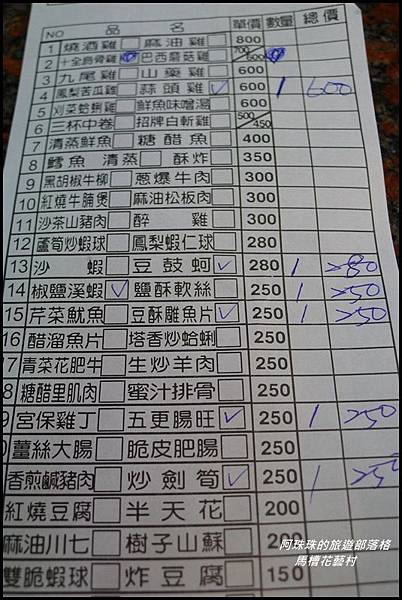 NO 品 名 單價 數量 總價
1 燒酒雞 麻油雞 800
2 十全烏骨雞 巴西蘑菇雞 700/600
3 九尾雞 山藥雞 600
4 鳳梨苦瓜雞 蒜頭雞 ✓ 600 1 600
5 刈菜蛤蜊雞 鮮魚味噌湯 600
6 三杯中卷 招牌白斬雞 500/450
7 清蒸鮮魚 糖醋魚 400
8 鱈魚 清蒸 酥炸 350
9 黑胡椒牛柳 蔥爆牛肉 300
10 紅燒牛腩煲 麻油松板肉 300
11 沙茶山豬肉 醉雞 300
12 蘆筍炒蝦球 鳳梨蝦仁球 280
13 沙蝦 豆鼓蚵 ✓ 280 1 280
14 椒鹽溪蝦 ✓ 鹽酥軟絲 250 1 250
15 芹菜魷魚 豆酥雕魚片 ✓ 250 1 250
16 醋溜魚片 塔香炒蛤蜊 250
7 青菜花肥牛 生炒羊肉 250
8 糖醋里肌肉 蜜汁排骨 250
9 宮保雞丁 五更腸旺 ✓ 250 1 250
0 薑絲大腸 脆皮肥腸 250
香煎鹹豬肉 炒劍筍 ✓ 250 1 250
紅燒豆腐 半天花 200
麻油川七 樹子山蘇 200
雙脆蝦球 炸豆腐 150
阿珠珠的旅遊部落格
馬槽花藝村